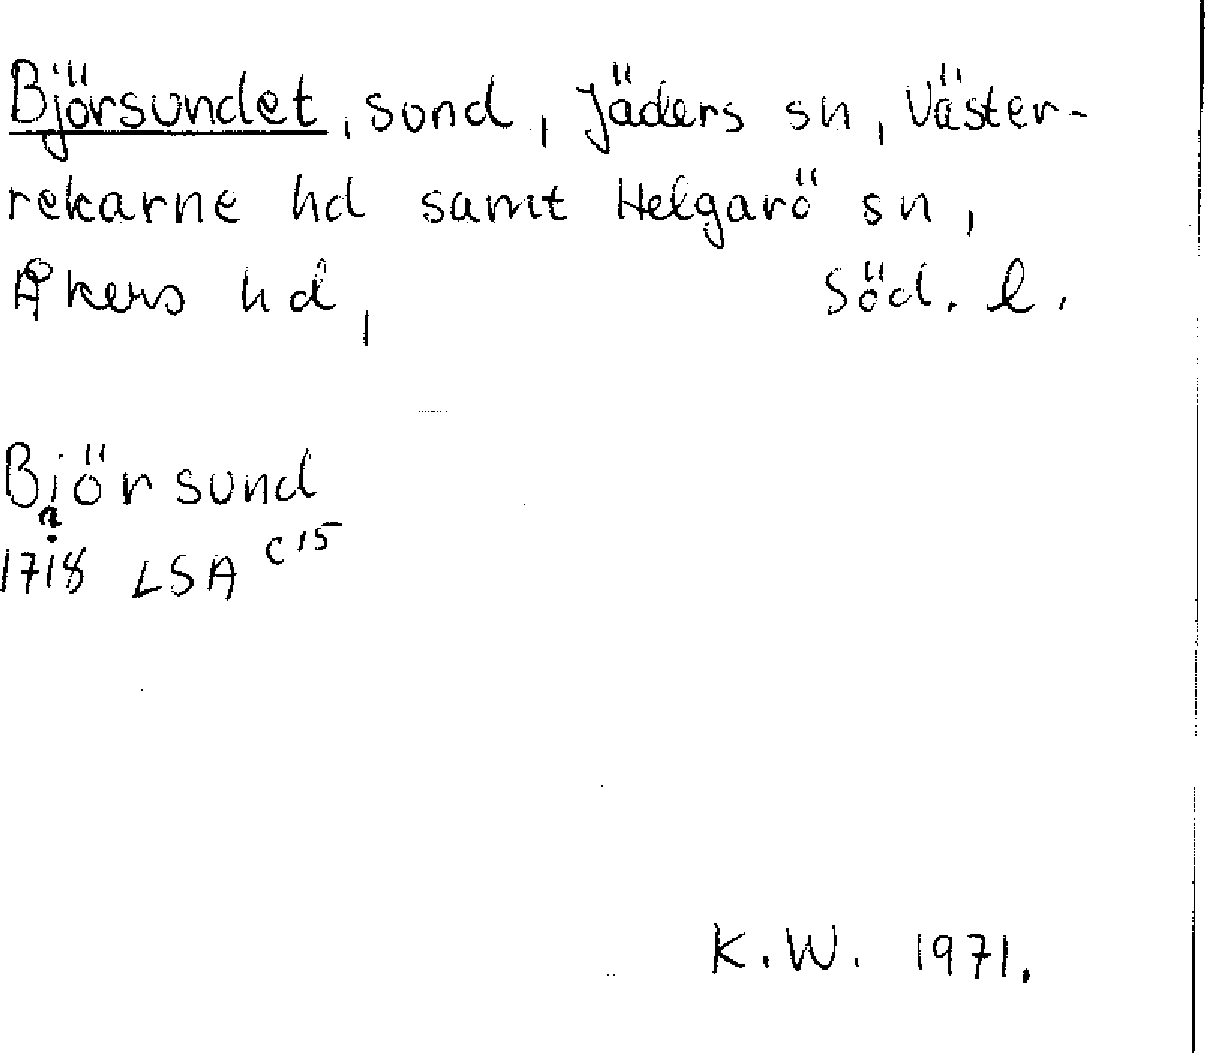 Björsundet, sund, Jäders sn, Väster-
rekarne hd samt Helgarö sn,
Åkers hd, Söd. l.
Björsund
?
1718 LSA C15
K.W. 1971.